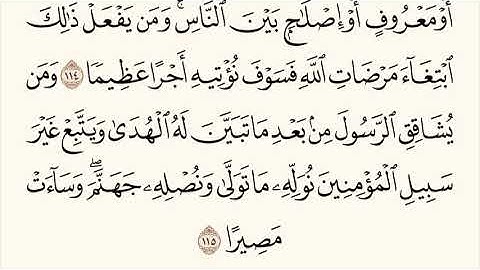 أَوْ مَعْرُوفٍ أَوْ إِصْلَٰحٍۭ بَيْنَ ٱلنَّاسِۚ وَمَن يَفْعَلْ ذَٰلِكَ
ٱبْتِغَآءَ مَرْضَاتِ ٱللَّهِ فَسَوْفَ نُؤْتِيهِ أَجْرًا عَظِيمًا ١١٤ وَمَن
يُشَاقِقِ ٱلرَّسُولَ مِنۢ بَعْدِ مَا تَبَيَّنَ لَهُ ٱلْهُدَىٰ وَيَتَّبِعْ غَيْرَ
سَبِيلِ ٱلْمُؤْمِنِينَ نُوَلِّهِۦ مَا تَوَلَّىٰ وَنُصْلِهِۦ جَهَنَّمَۖ وَسَآءَتْ
مَصِيرًا ١١٥